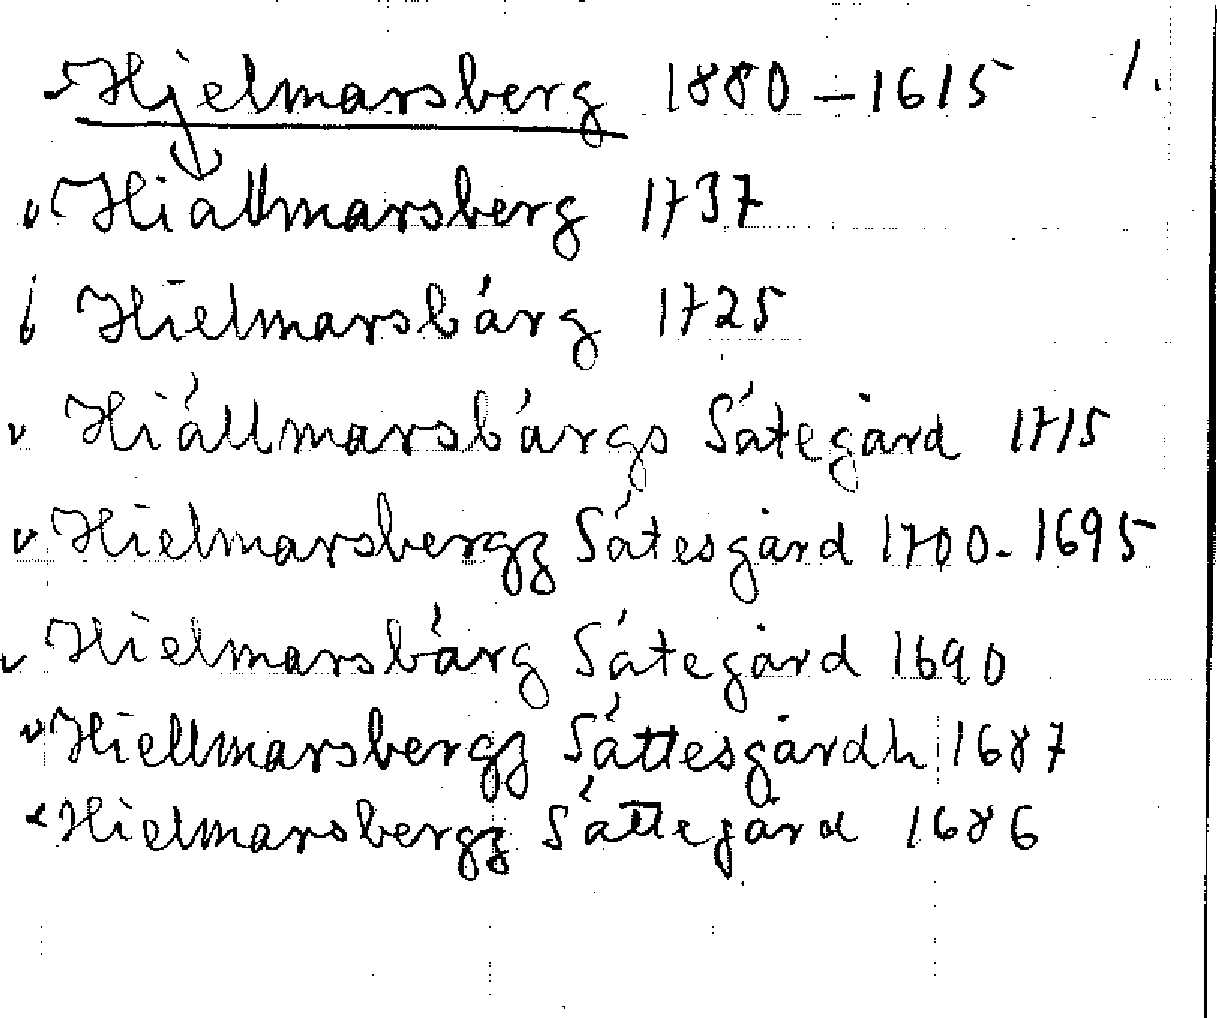 Hjelmarsberg 1880–1615 1.
Hiallmarsberg 1737
Hielmarsbárg 1725
Hiállmarsbárgs Sátegård 1715
Hielmarsbergz Sátesgård 1700-1695
Hielmarsbárg Sátegård 1690
Hiellmarsbergz Sáttesgårdh 1687
Hielmarsbergz Sáttegård 1686